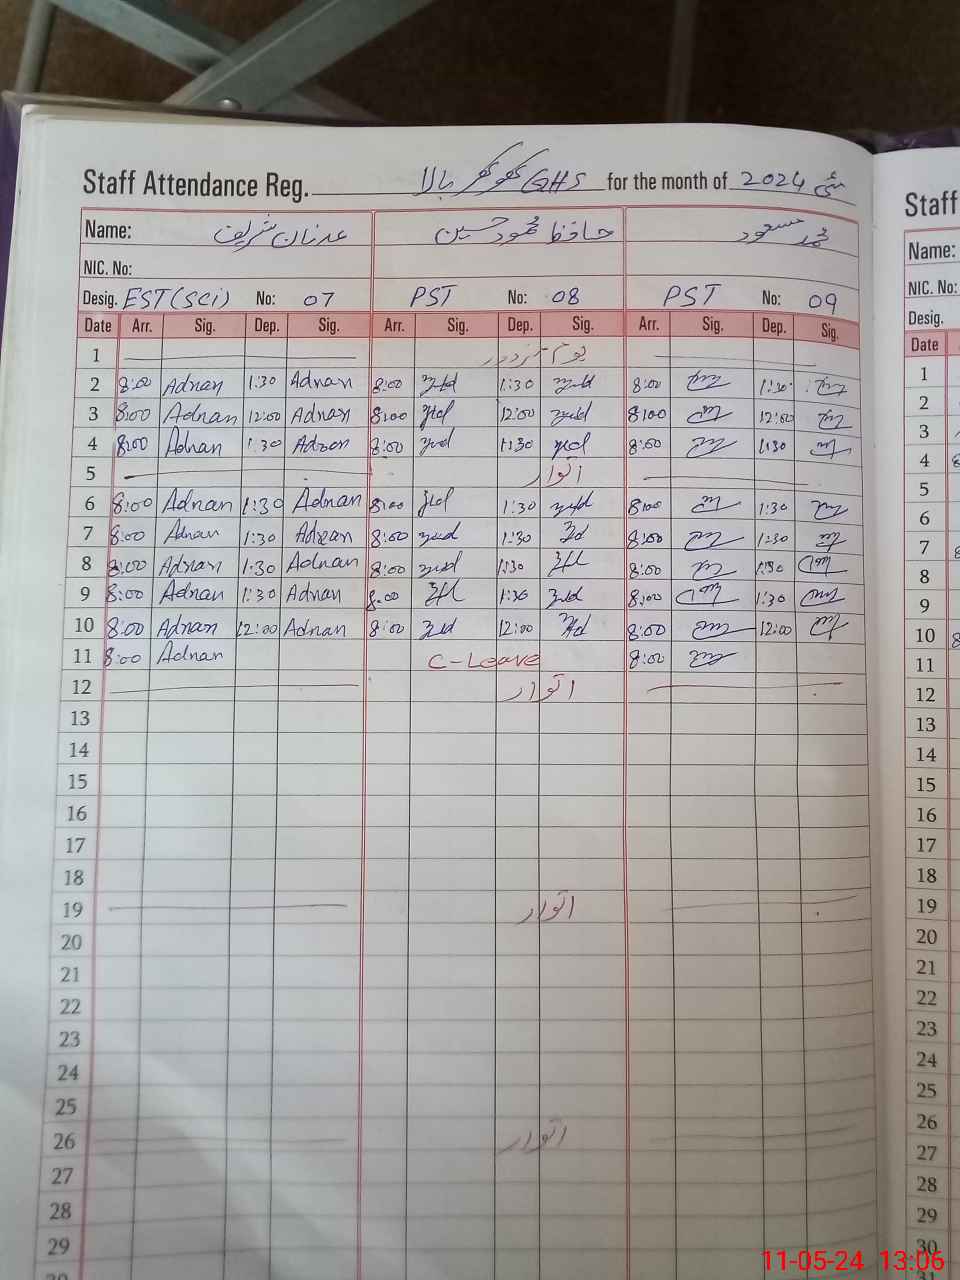 Staff Attendance Reg. GHS کھوکھر بالا for the month of مئی 2024
Name: عدنان شریف حافظ محمود حسین محمد مسعود
NIC. No:
Desig. EST (Sci) No: 07 PST No: 08 PST No: 09
Date Arr. Sig. Dep. Sig. Arr. Sig. Dep. Sig. Arr. Sig. Dep. Sig.
1 یوم مزدور
2 8:00 Adnan 1:30 Adnan 8:00 1:30 8:00 1:30
3 8:00 Adnan 12:00 Adnan 8:00 12:00 8:00 12:00
4 8:00 Adnan 1:30 Adnan 8:00 1:30 8:00 1:30
5 اتوار
6 8:00 Adnan 1:30 Adnan 8:00 1:30 8:00 1:30
7 8:00 Adnan 1:30 Adnan 8:00 1:30 8:00 1:30
8 8:00 Adnan 1:30 Adnan 8:00 1:30 8:00 1:30
9 8:00 Adnan 1:30 Adnan 8:00 1:30 8:00 1:30
10 8:00 Adnan 12:00 Adnan 8:00 12:00 8:00 12:00
11 8:00 Adnan C-Leave 8:00
12 اتوار
13
14
15
16
17
18
19 اتوار
20
21
22
23
24
25
26 اتوار
27
28
29
30
Staff
Name:
NIC. No:
Desig.
Date
1
2
3
4 8
5
6
7 8
8
9
10 8
11
12
13
14
15
16
17
18
19
20
21
22
23
24
25
26
27
28
29
30
31
11-05-24 13:06